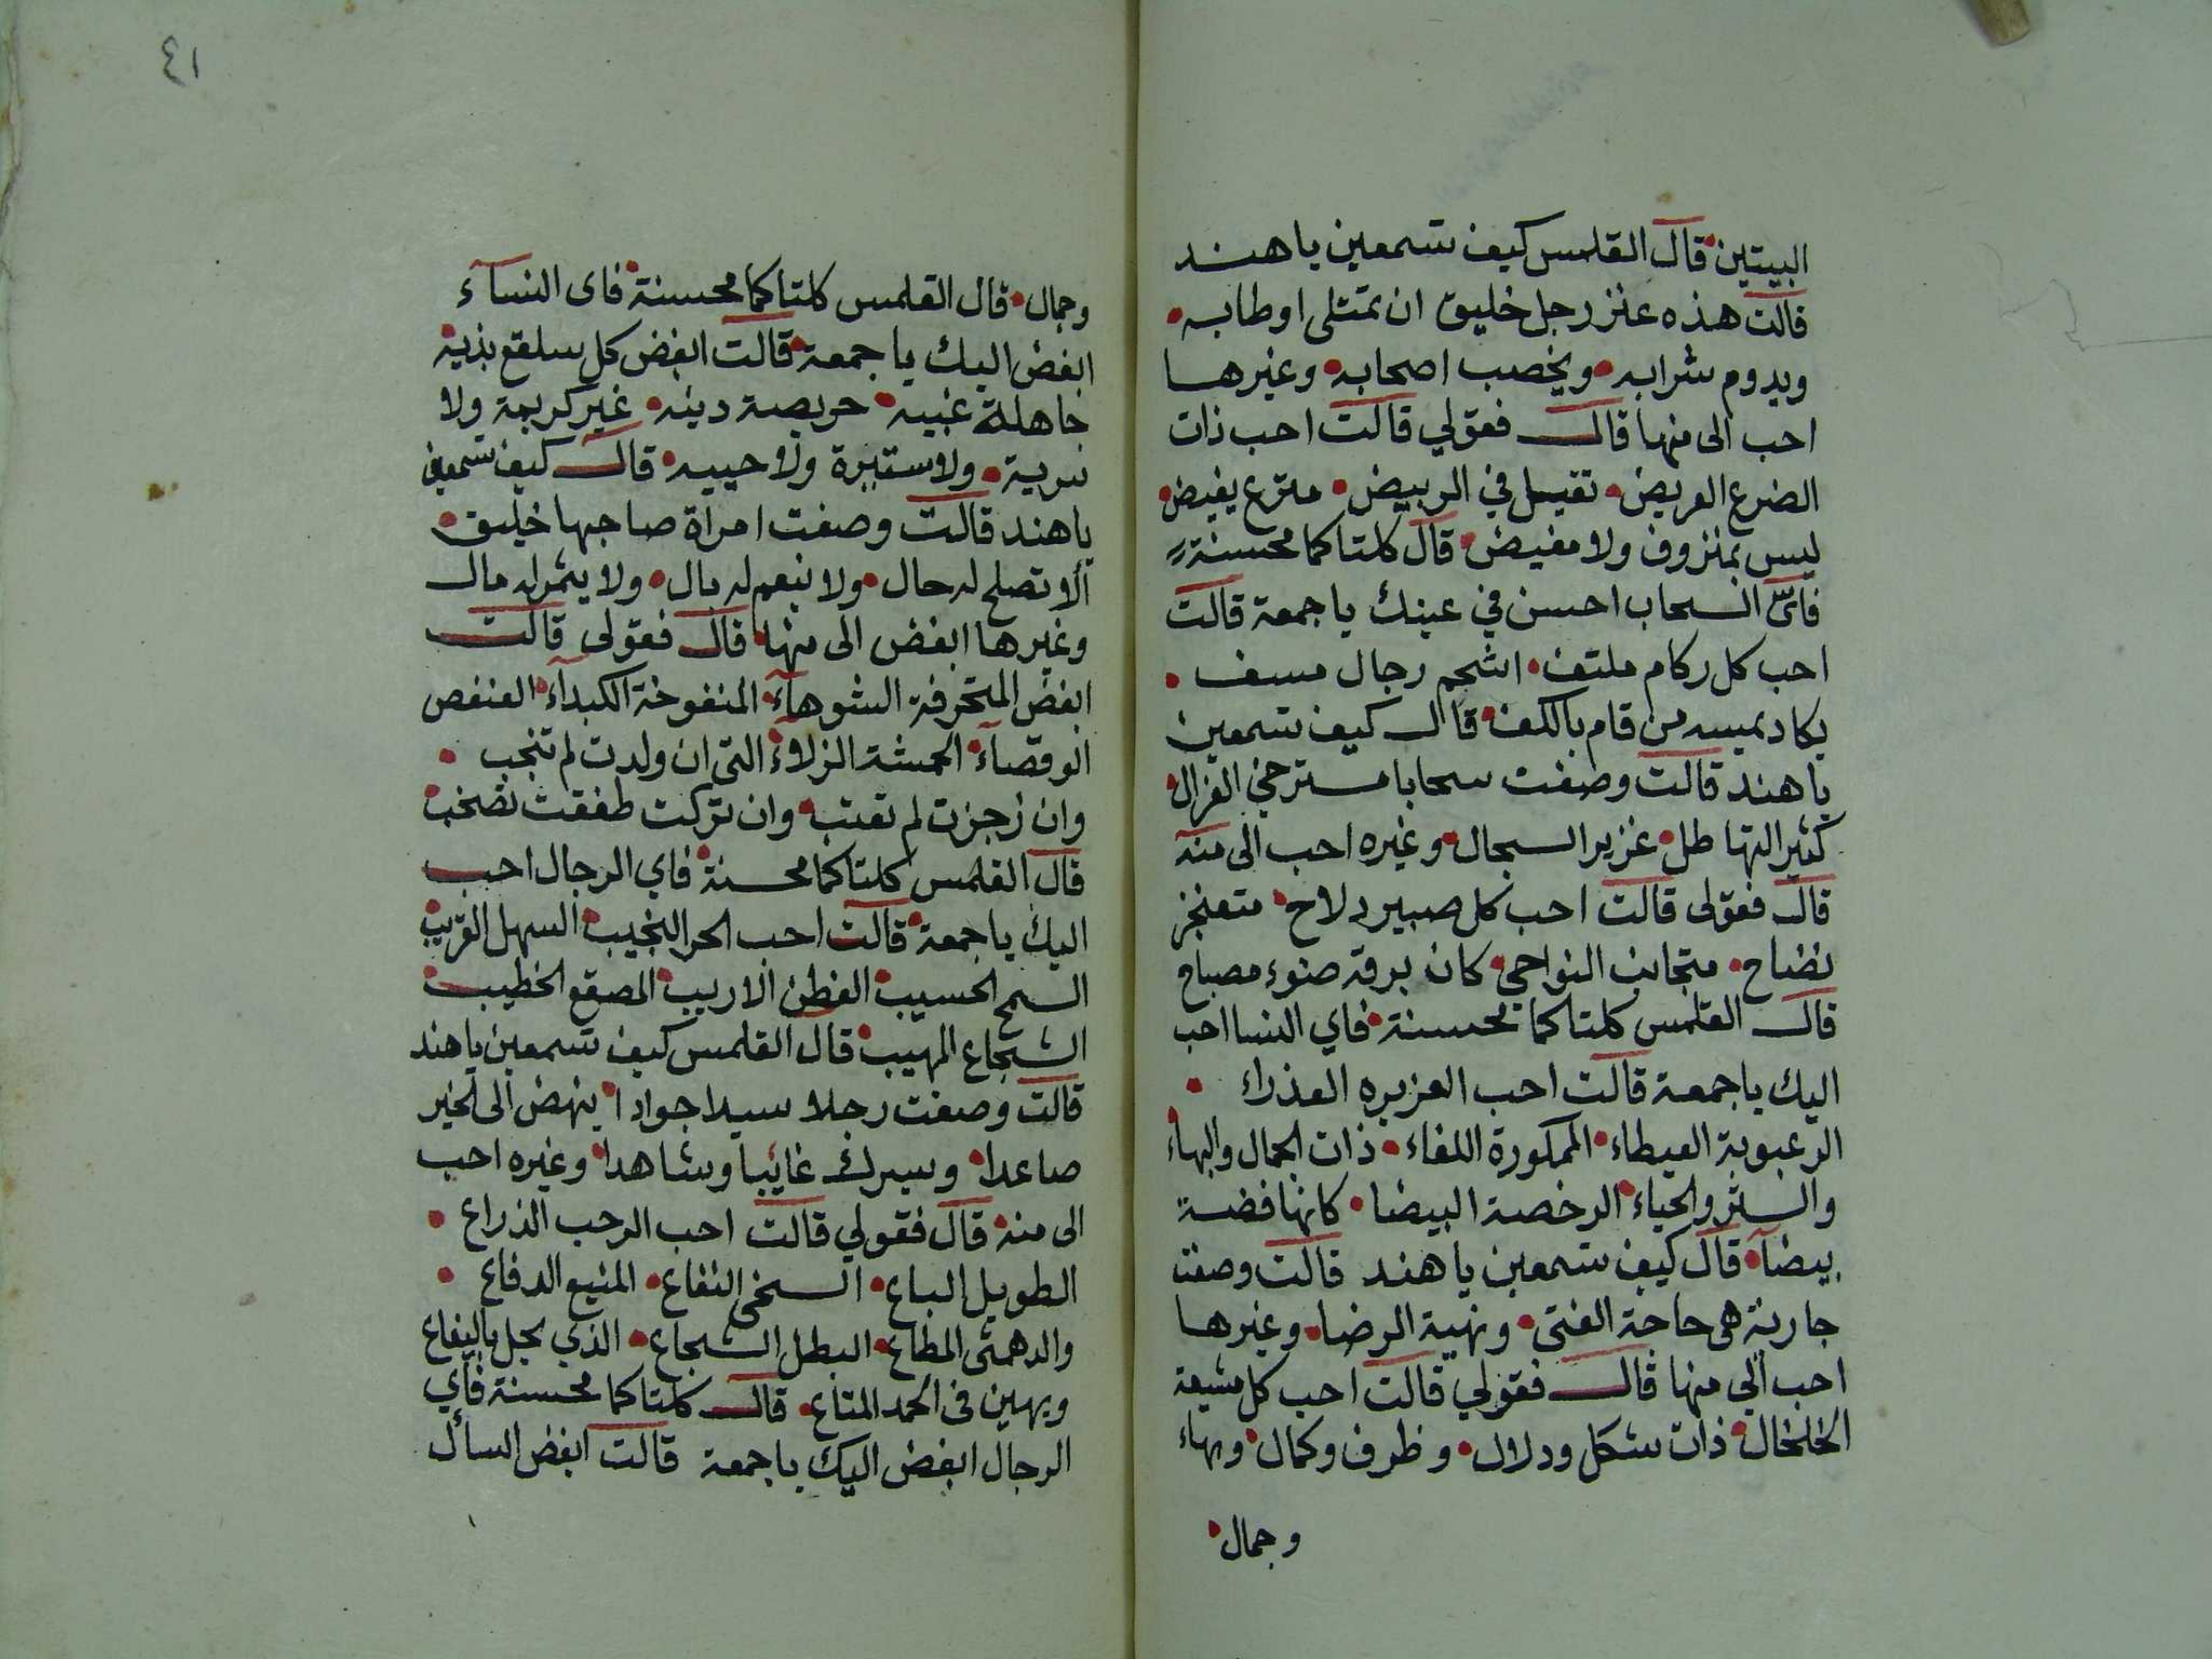 البيتين قال القلمس كيف تسمعين يا هند
قالت هذه عنز رجل خليق ان تمتلى اوطابه
ويدوم شرابه ويخصب اصحابه وغيرها
احب الى منها قال فقولي قالت احب ذات
الضرع العريض تقيل في الربيض مترع يفيض
ليس بمنزوف ولا مغيض قال كلتاكما محسنة
فاىّ السحاب احسن في عينك يا جمعة قالت
احب كل ركام ملتف اثجم رجال مسف
يكاد يمسه من قام بالكف قال كيف تسمعين
يا هند قالت وصفت سحابا مسترخي الغزال
كثير التهاطل غزير السجال وغيره احب الى منه
قال فقولى قالت احب كل صبير دلاح متعنجز
نضاح متجانف النواحي كان برقه ضوء مصباح
قال القلمس كلتاكما محسنة فاي النسا احب
اليك يا جمعة قالت احب الغزيره العذراء
الرعبوبة العيطاء الممكورة اللفاء ذات الجمال والبهاء
والستر والحياء الرخصة البيضا كانها فضة
بيضآ قال كيف تسمعين يا هند قالت وصفت
جارية هى حاجة الفتى ونهية الرضا وغيرها
احب الي منها قال فقولي قالت احب كل مشبعة
الخلخال ذات شكل ودلال وظرف وكمال وبهاء
وجمال
٤١
وجمال قال القلمس كلتاكما محسنة فاى النسآء
ابغض اليك يا جمعة قالت ابغض كل سلقع بذية
جاهلة غبيه حريصة دينه غير كريمة ولا
سرية ولا ستيرة ولا حييه قال كيف تسمعين
يا هند قالت وصفت امرأة صاحبها خليق
ألا تصلح له حال ولا ينعم له بال ولا يثمر له مال
وغيرها ابغض الى منها قال فقولى قالت
ابغض المتحرفة الشوهآء المنفوخة الكبدآء العنفص
الوقصآء الحمشة الزلاء التى ان ولدت لم تنجب
وان زجرت لم تعتب وان تركت طفقت تضخب
قال القلمس كلتاكما محسنة فاي الرجال احب
اليك يا جمعة قالت احب الحر النجيب السهل القريب
السمح الحسيب الفطن الاريب المصقع الخطيب
الشجاع المهيب قال القلمس كيف تسمعين يا هند
قالت وصفت رجلا سيدا جوادا ينهض الى الخير
صاعدا ويسرك غائبا وشاهدا وغيره احب
الى منه قال فقولي قالت احب الرحب الذراع
الطويل الباع السخى النفاع المنيع الدفاع
والدهمثى المطاع البطل الشجاع الذي يحل باليفاع
ويهين فى الحمد المتاع قال كلتاكما محسنة فاي
الرجال ابغض اليك يا جمعة قالت ابغض السأل